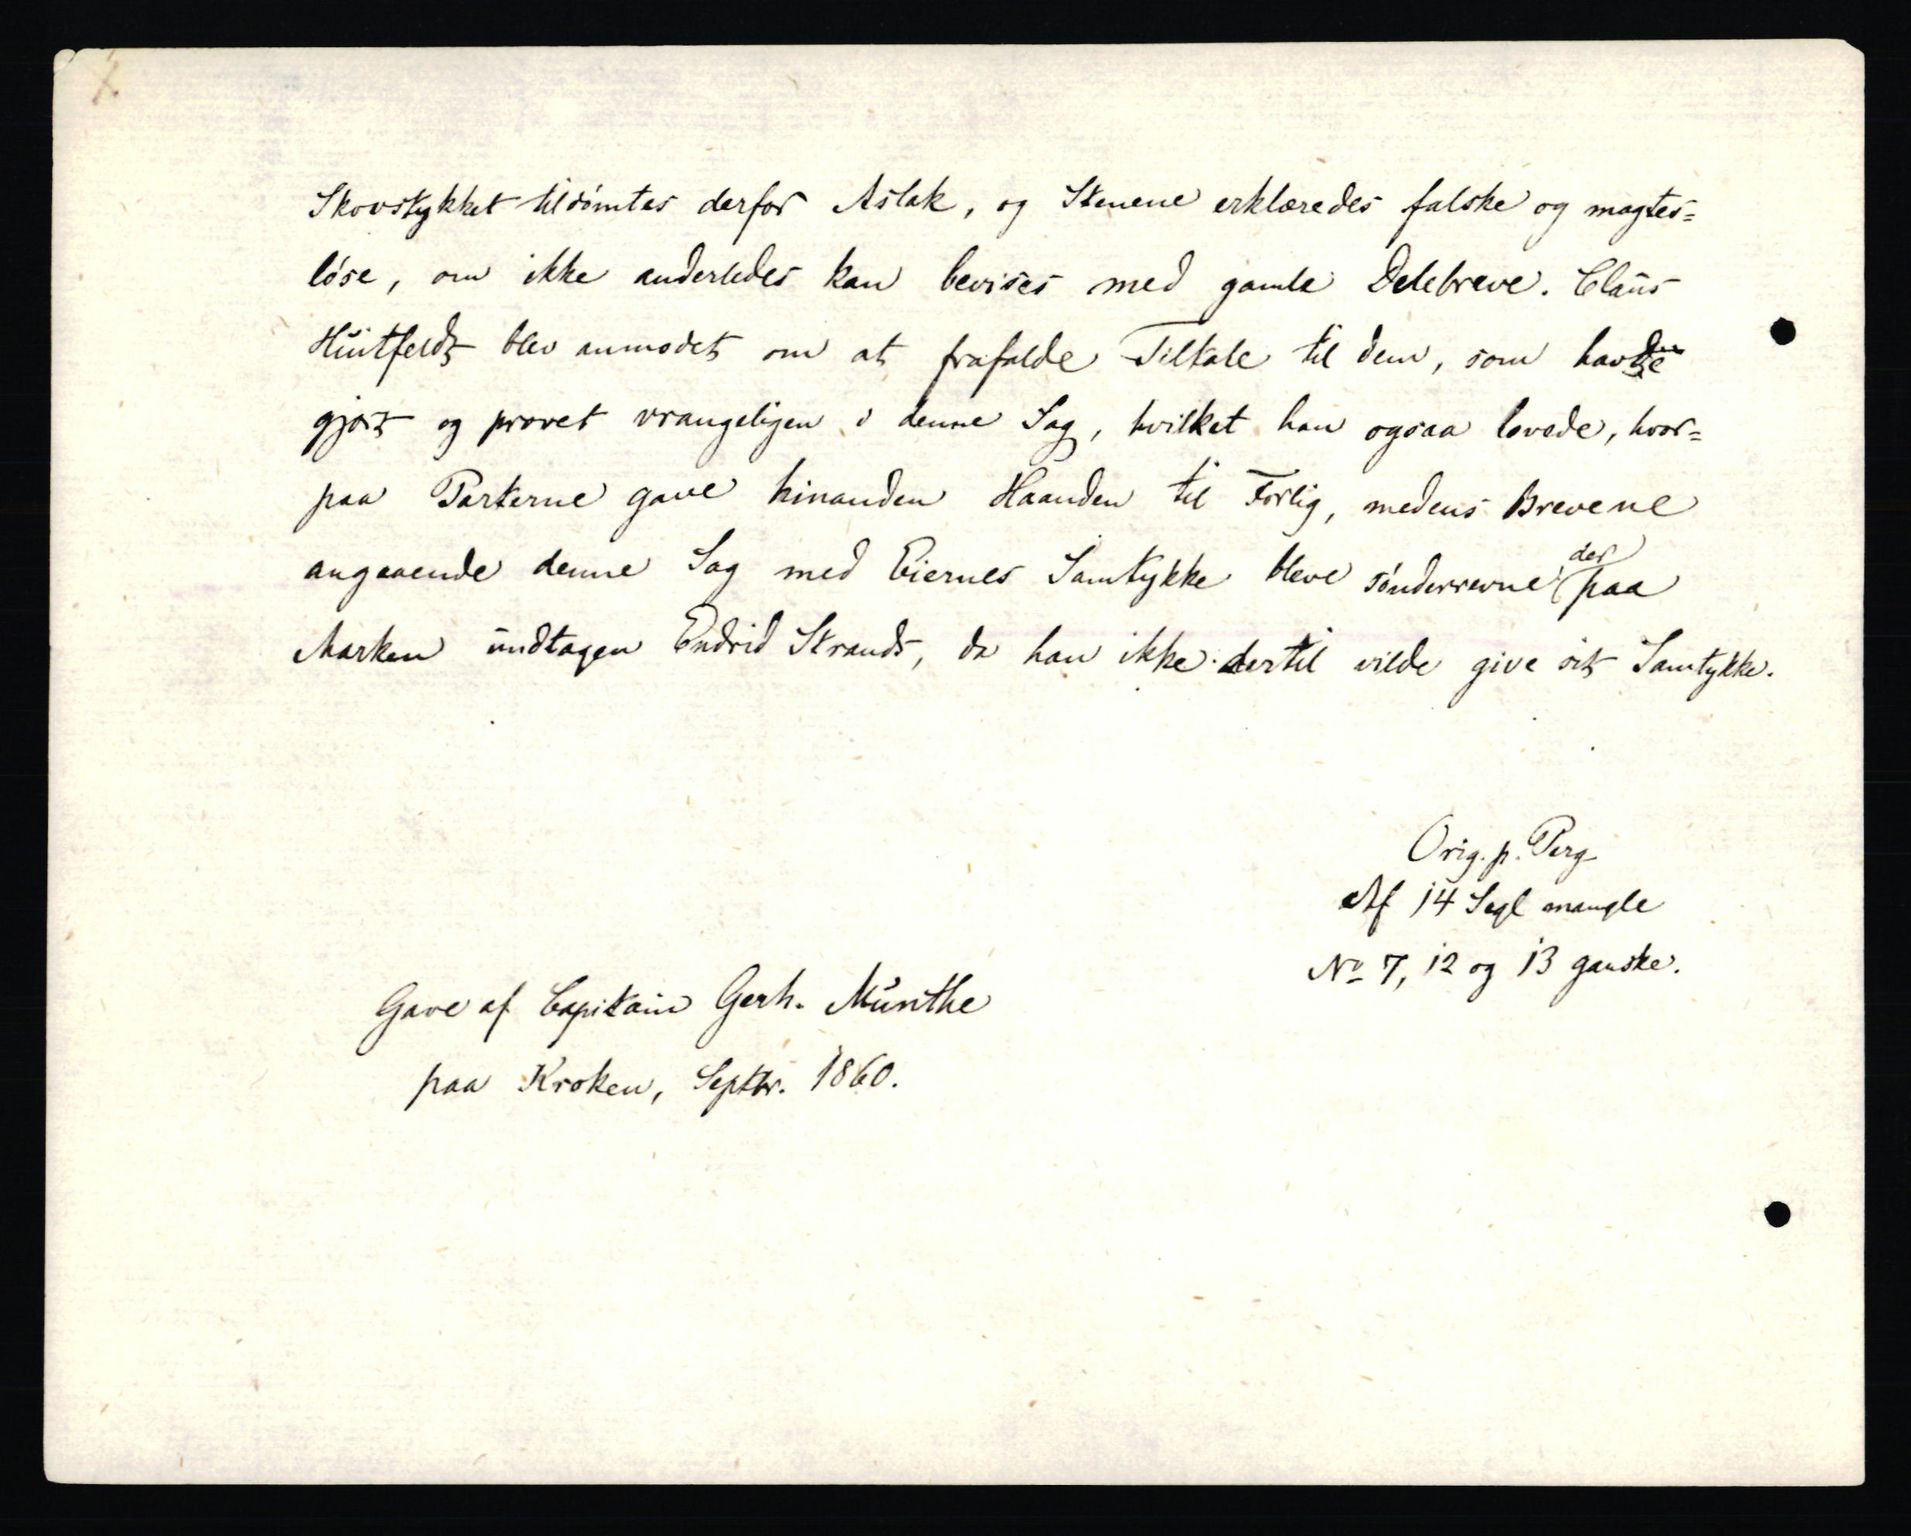 Skovstykket tildömtes derfor Aslak, og Stenene erklæredes falske og magtes=
löse, om ikke anderledes kan bevises med gamle Delebreve. Claus
Huitfeldt blev anmodet om at frafalde Tiltale til dem, som havde
gjort og provet vrangeligen i denne Sag, hvilket han ogsaa lovede, hvor=
paa Parterne gave hinanden Haanden til Forlig, medens Brevene
angaaende denne Sag med Eiernes Samtykke bleve sönderrevne der paa
Marken undtagen Endrid Strands, da han ikke dertil vilde give sit Samtykke.
Orig. p. Perg.
Af 14 Segl mangle
No 7, 12 og 13 ganske.
Gave af Capitain Gerh. Munthe
paa Kroken, Septbr. 1860.